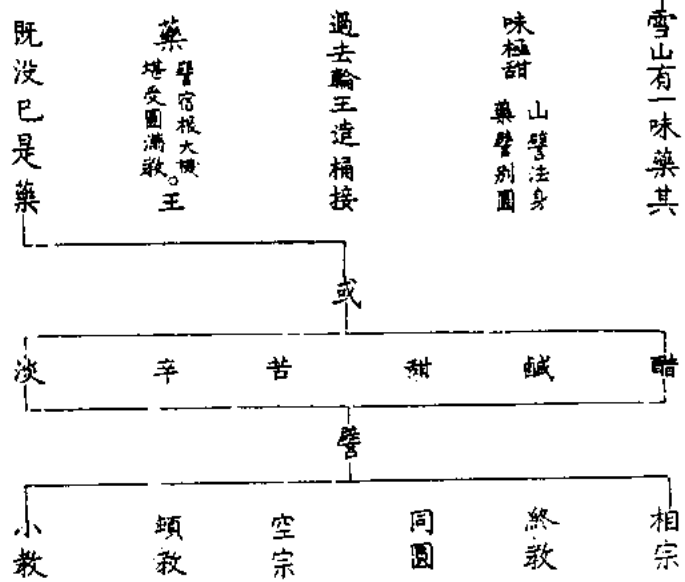 雪山有一味藥其
味極甜
山譬法身
藥譬別圓
過去輪王造桶接
藥
譬宿根大機
堪受圓滿教。王
既没已是藥
或
醋
鹹
甜
苦
辛
淡
譬
相宗
終教
同圓
空宗
頓教
小教